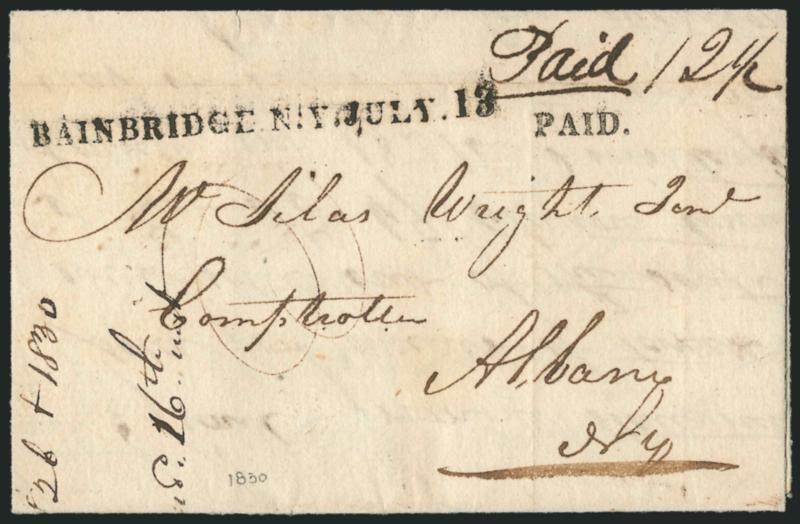 Paid / 12½
BAINBRIDGE N.Y. JULY. 13
PAID.
Mr Silas Wright, Junr
Comptroller
Albany
Ny
26 + 1830
16th
1830